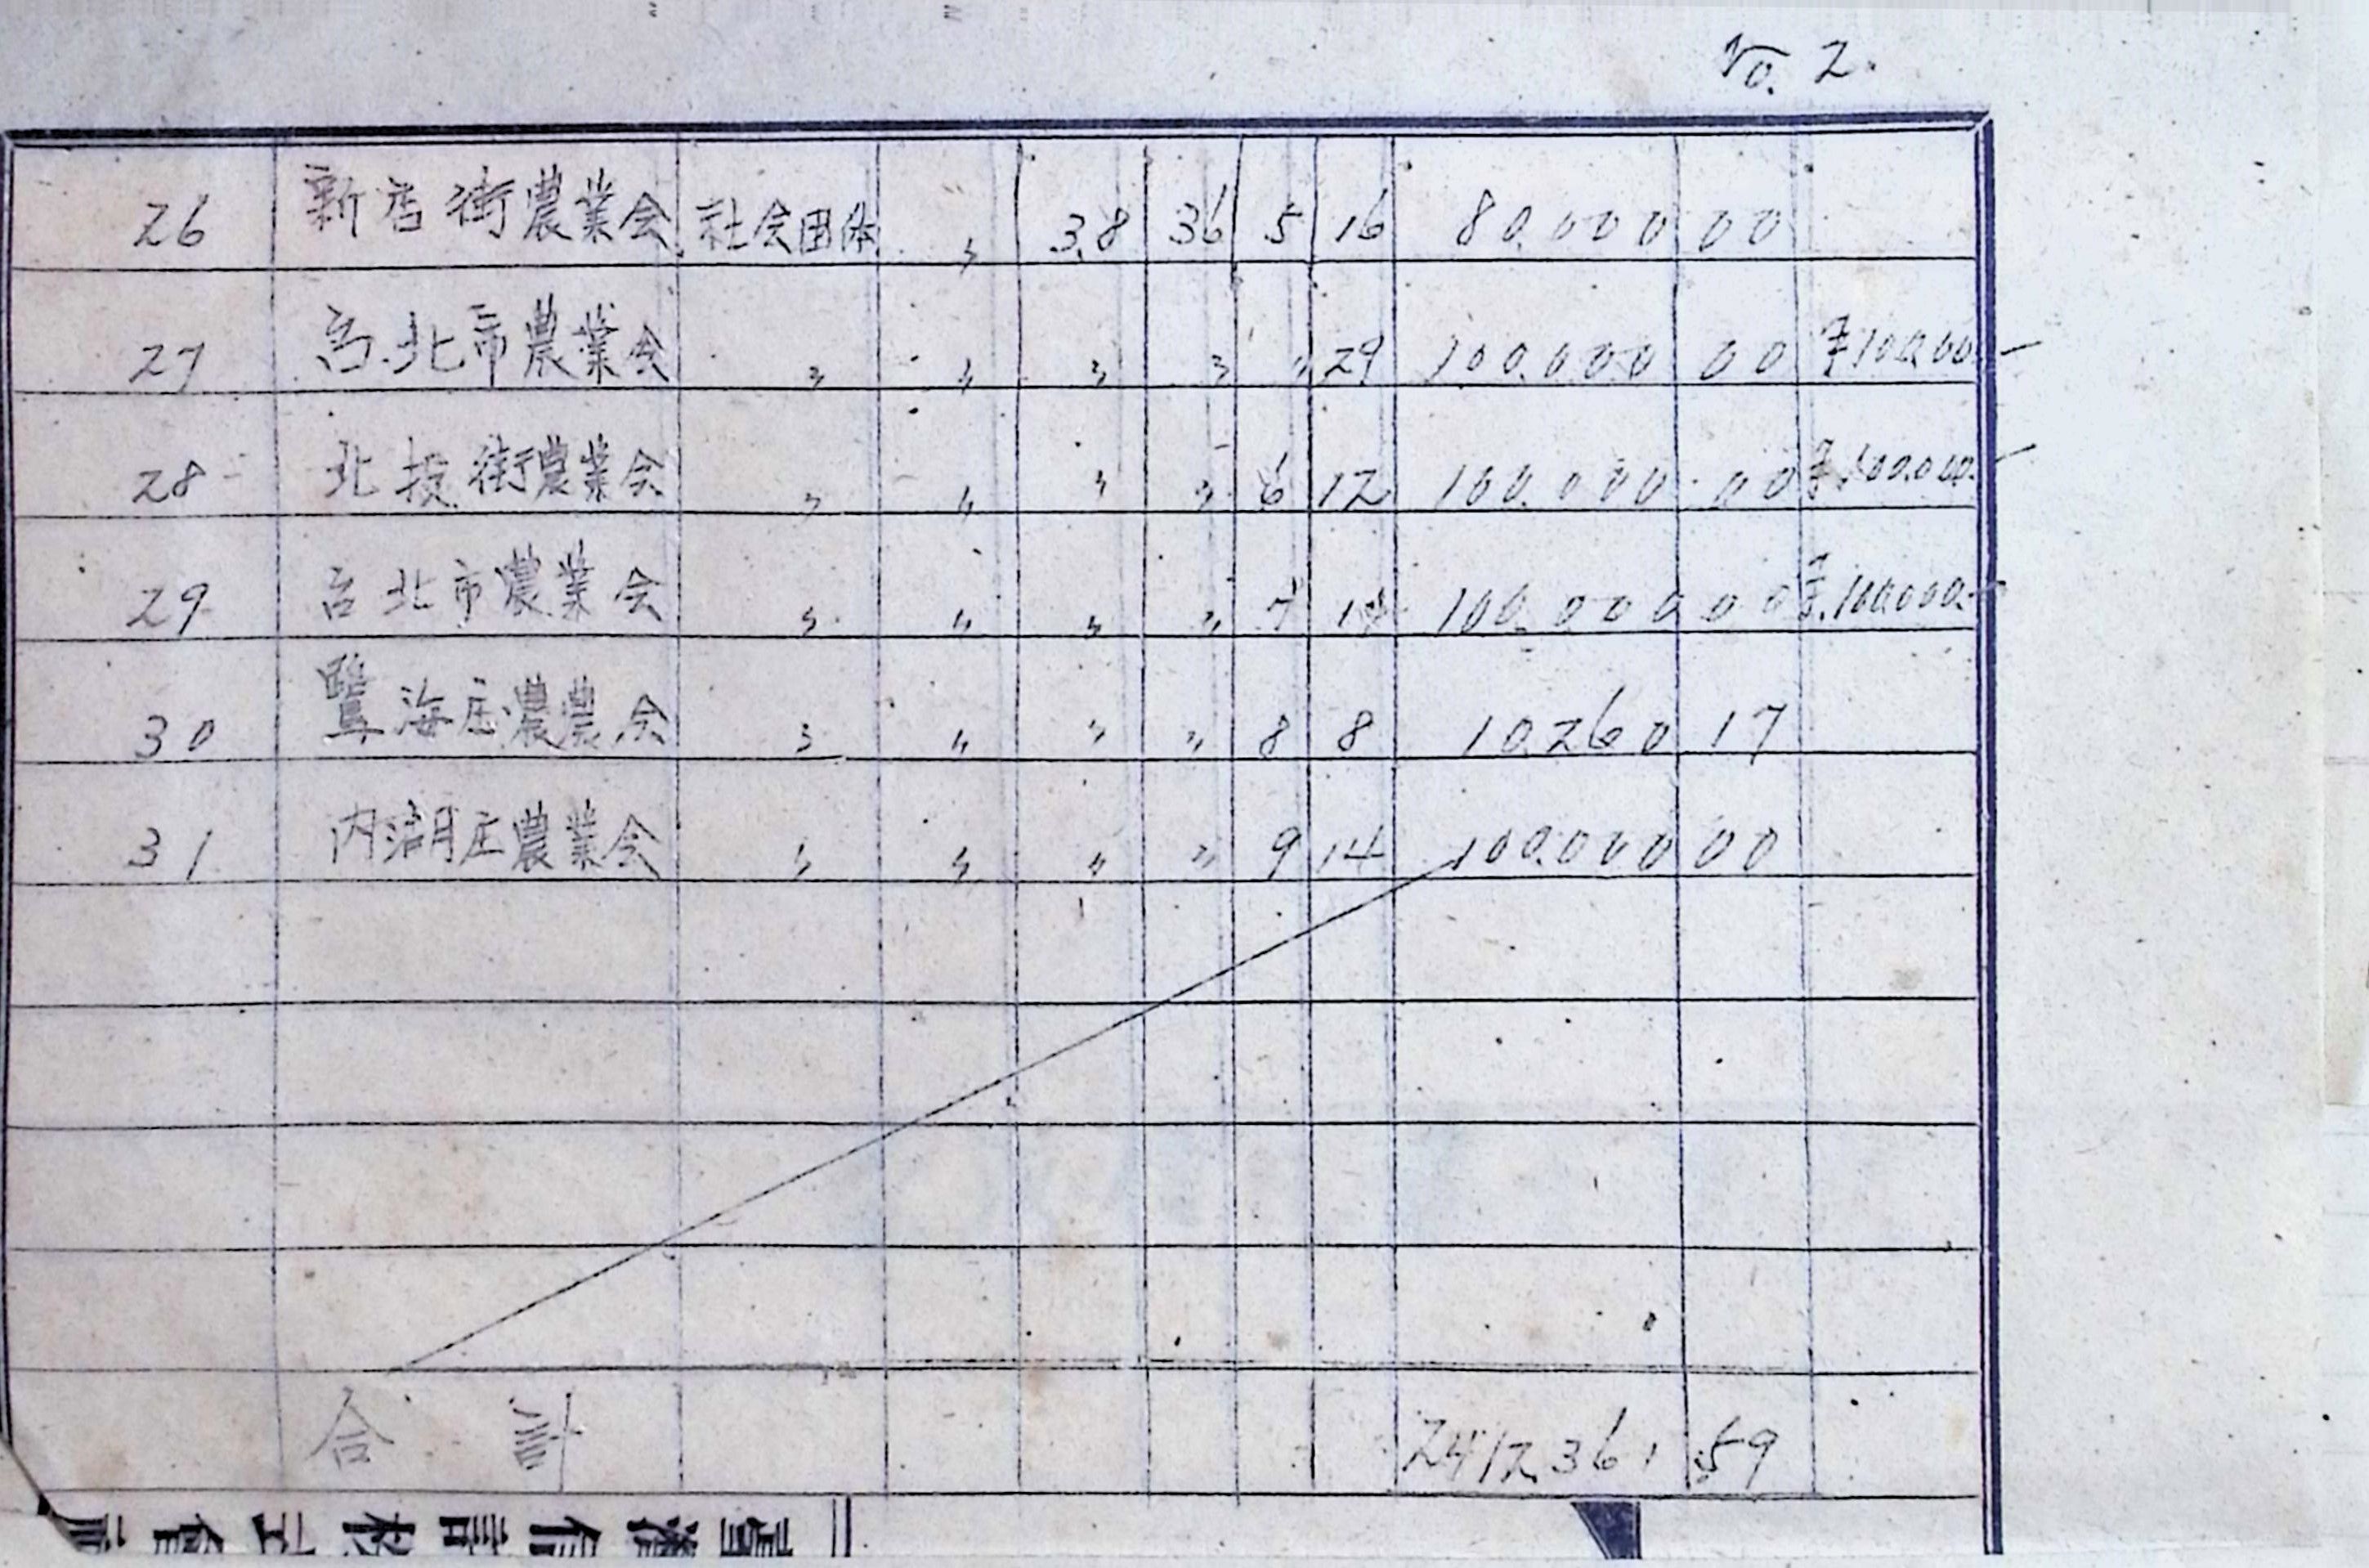 No. 2.
26 新店街農業会 社会団体 〃 3.8 36 5 16 80.000 00
27 台北市農業会 〃 〃 〃 〃 〃 29 100.000 00 100.000
28 北投街農業会 〃 〃 〃 〃 6 12 100.000 00 100.000.
29 台北市農業会 〃 〃 〃 〃 7 100.000 00 100.000.
30 海庄農農会 〃 〃 〃 〃 8 8 10.260 17
31 内湖庄農業会 〃 〃 〃 〃 9 14 100.000 00
合計 2412.361 59